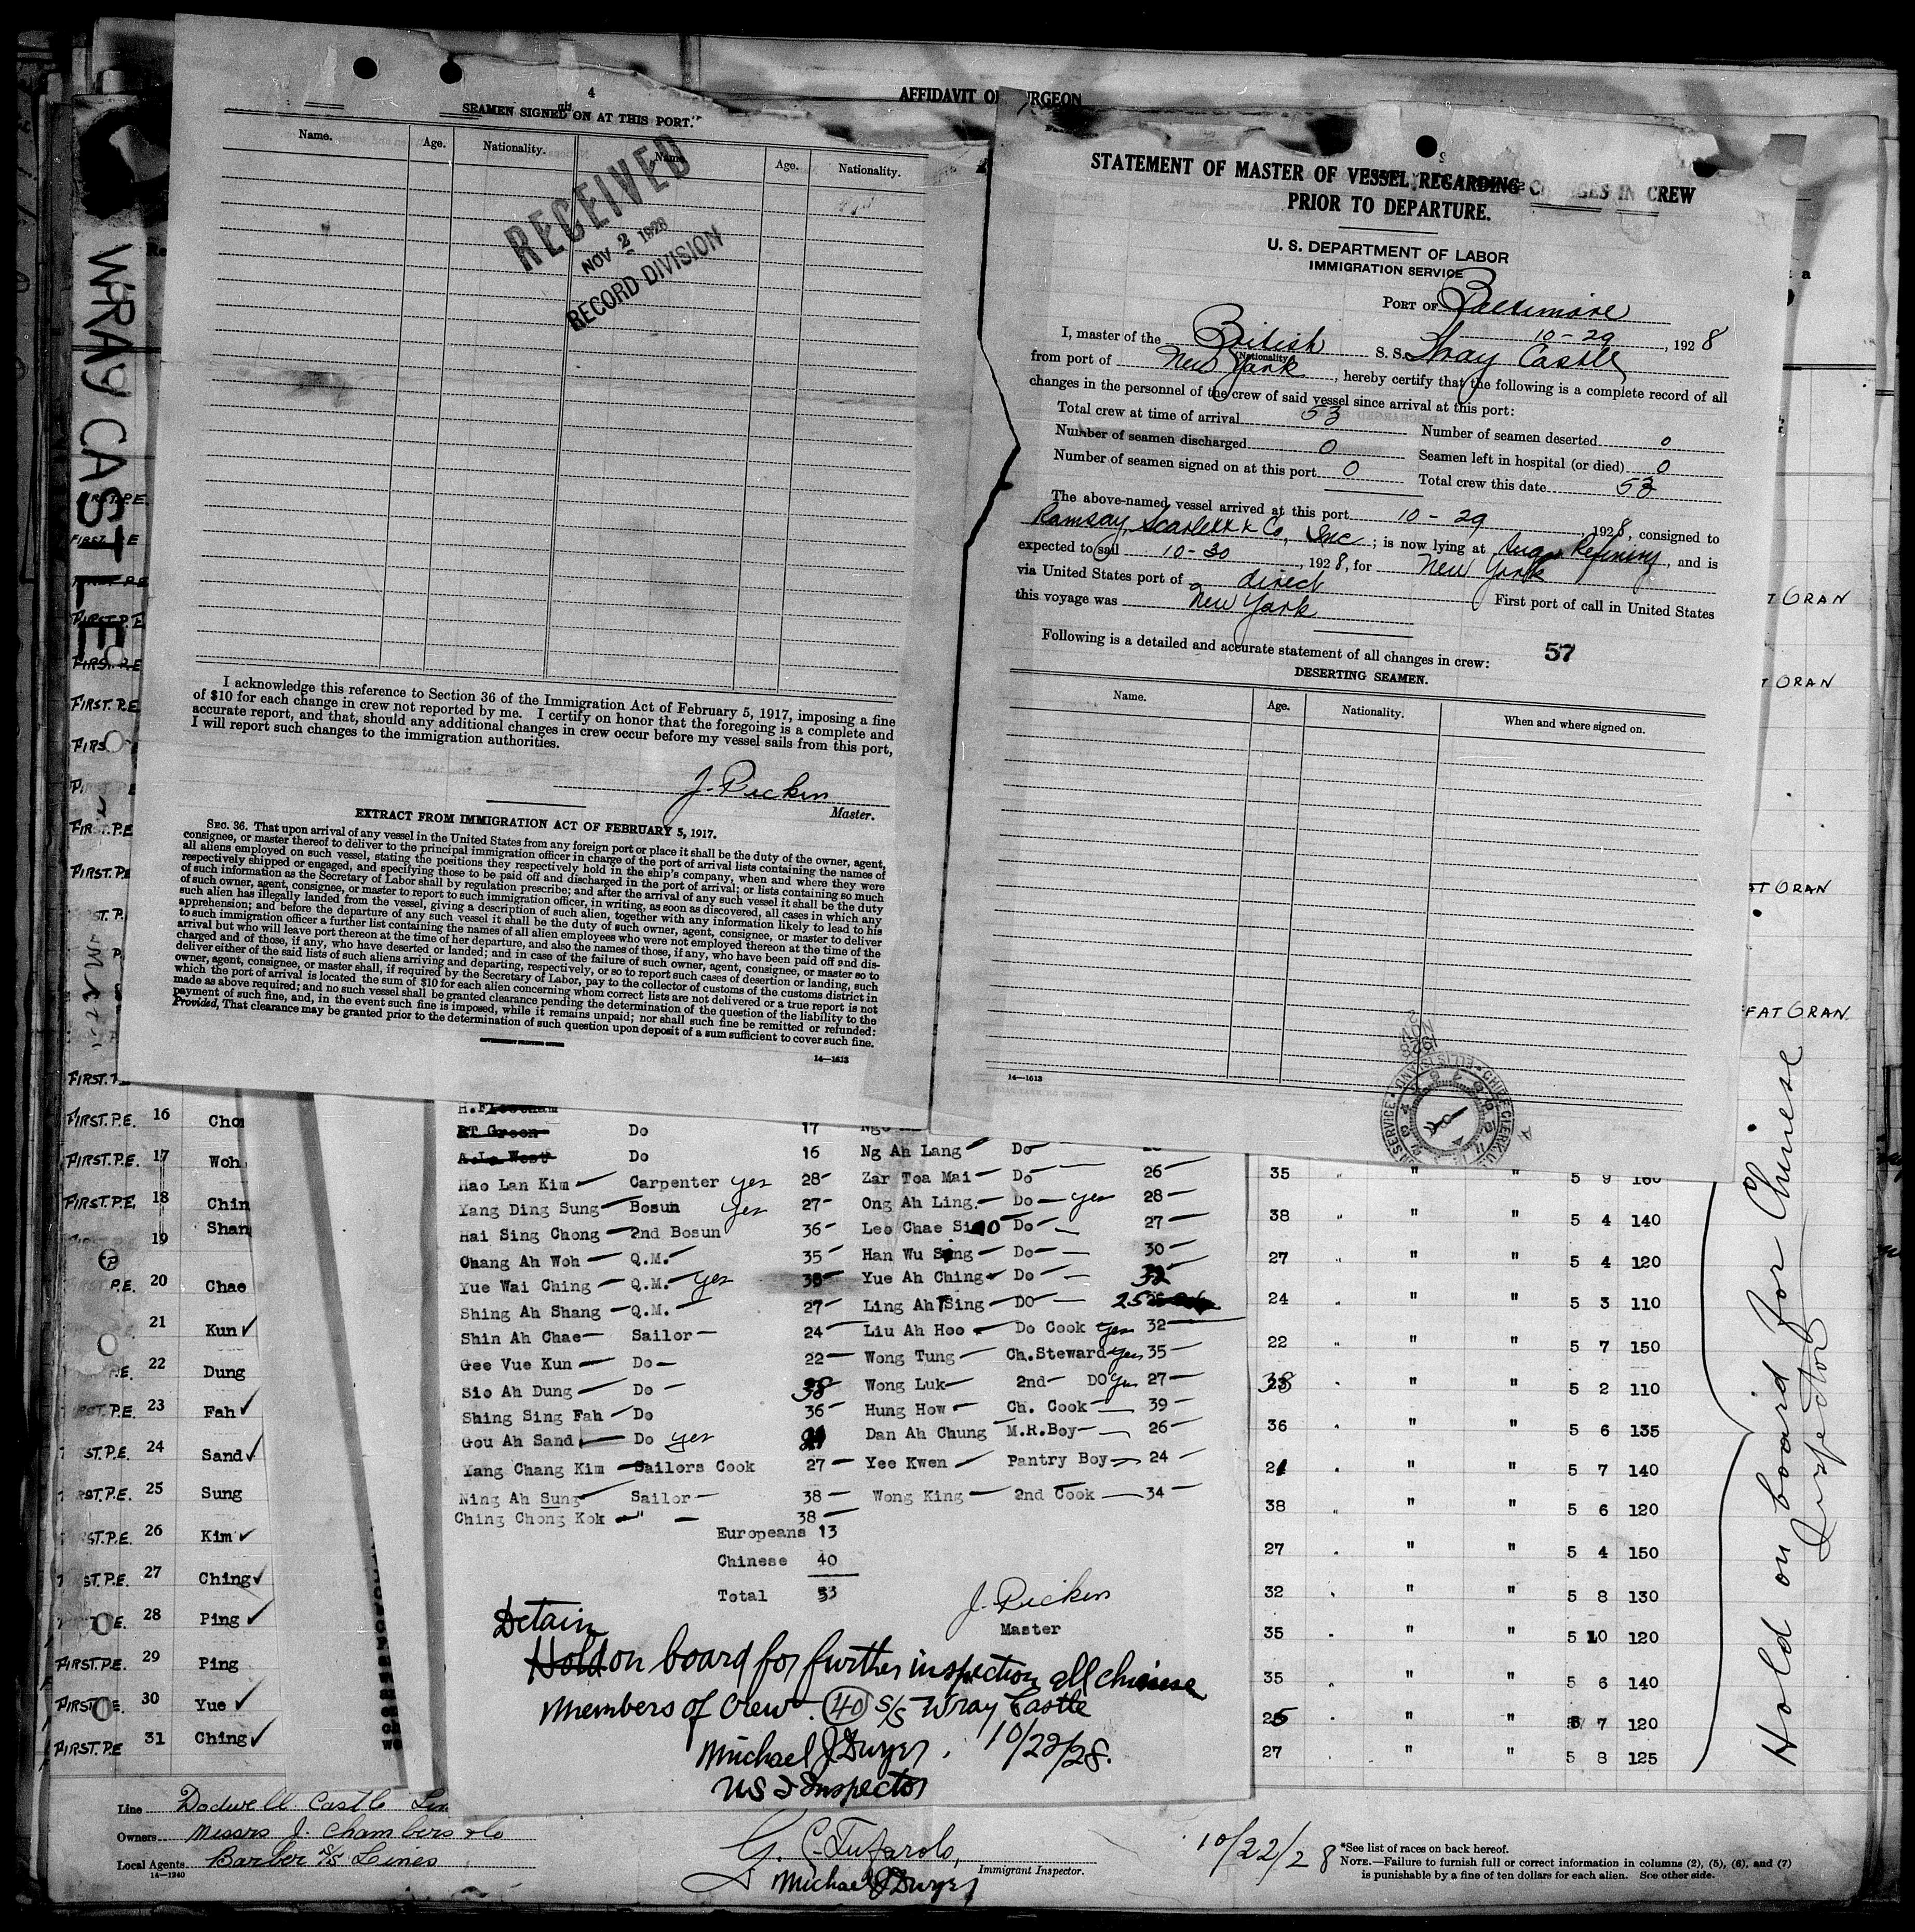 AFFIDAVIT OF SURGEON
WRAY CASTLE
4
SEAMEN SIGNED ON AT THIS PORT.
Name. Age. Nationality. Name. Age. Nationality.
RECEIVED
NOV 2 1928
RECORD DIVISION
I acknowledge this reference to Section 36 of the Immigration Act of February 5, 1917, imposing a fine
of $10 for each change in crew not reported by me. I certify on honor that the foregoing is a complete and
accurate report, and that, should any additional changes in crew occur before my vessel sails from this port,
I will report such changes to the immigration authorities.
J. Pickin
Master.
EXTRACT FROM IMMIGRATION ACT OF FEBRUARY 5, 1917.
SEC. 36. That upon arrival of any vessel in the United States from any foreign port or place it shall be the duty of the owner, agent,
consignee, or master thereof to deliver to the principal immigration officer in charge of the port of arrival lists containing the names of
all aliens employed on such vessel, stating the positions they respectively hold in the ship's company, when and where they were
respectively shipped or engaged, and specifying those to be paid off and discharged in the port of arrival; or lists containing so much
of such information as the Secretary of Labor shall by regulation prescribe; and after the arrival of any such vessel it shall be the duty
of such owner, agent, consignee, or master to report to such immigration officer, in writing, as soon as discovered, all cases in which any
such alien has illegally landed from the vessel, giving a description of such alien, together with any information likely to lead to his
apprehension; and before the departure of any such vessel it shall be the duty of such owner, agent, consignee, or master to deliver
to such immigration officer a further list containing the names of all alien employees who were not employed thereon at the time of the
arrival but who will leave port thereon at the time of her departure, and also the names of those, if any, who have been paid off and dis-
charged and of those, if any, who have deserted or landed; and in case of the failure of such owner, agent, consignee, or master so to
deliver either of the said lists of such aliens arriving and departing, respectively, or so to report such cases of desertion or landing, such
owner, agent, consignee, or master shall, if required by the Secretary of Labor, pay to the collector of customs of the customs district in
which the port of arrival is located the sum of $10 for each alien concerning whom correct lists are not delivered or a true report is not
made as above required; and no such vessel shall be granted clearance pending the determination of the question of the liability to the
payment of such fine, and, in the event such fine is imposed, while it remains unpaid; nor shall such fine be remitted or refunded:
Provided, That clearance may be granted prior to the determination of such question upon deposit of a sum sufficient to cover such fine.
GOVERNMENT PRINTING OFFICE
14—1613
STATEMENT OF MASTER OF VESSEL REGARDING CHANGES IN CREW
PRIOR TO DEPARTURE.
U. S. DEPARTMENT OF LABOR
IMMIGRATION SERVICE
PORT OF Baltimore
10-29, 1928
I, master of the British S. S. Wray Castle
(Nationality)
from port of New York, hereby certify that the following is a complete record of all
changes in the personnel of the crew of said vessel since arrival at this port:
Total crew at time of arrival 53
Number of seamen deserted 0
Number of seamen discharged 0
Seamen left in hospital (or died) 0
Number of seamen signed on at this port 0
Total crew this date 53
The above-named vessel arrived at this port 10-29, 1928, consigned to
Ramsay, Scarlett & Co, Inc; is now lying at Sugar Refining, and is
expected to sail 10-30, 1928, for New York
via United States port of direct
First port of call in United States
this voyage was New York
Following is a detailed and accurate statement of all changes in crew: 57
DESERTING SEAMEN.
Name. Age. Nationality. When and where signed on.
14—1613
NOV 2 1928
CHIEF CLERK, U.S. IMMIGRATION SERVICE ELLIS ISLAND
RT Green Do 17
A.L. West Do 16 Ng Ah Lang Do
Hao Lan Kim Carpenter yes 28 Zar Toa Mai Do 26
Yang Ding Sung Bosun yes 27 Ong Ah Ling Do yes 28
Hai Sing Chong 2nd Bosun 36 Leo Chae Sino Do 27
Chang Ah Woh Q.M. 35 Han Wu Sing Do 30
Yue Wai Ching Q.M. yes 38 Yue Ah Ching Do 32
Shing Ah Shang Q.M. 27 Ling Ah Sing DO 25
Shin Ah Chae Sailor 24 Liu Ah Hoo Do Cook yes 32
Gee Vue Kun Do 22 Wong Tung Ch.Steward yes 35
Sio Ah Dung Do 38 Wong Luk 2nd DO yes 27
Shing Sing Fah Do 36 Hung How Ch. Cook 39
Gou Ah Sand Do yes 21 Dan Ah Chung M.R.Boy 26
Yang Chang Kim Sailors Cook 27 Yee Kwen Pantry Boy 24
Ning Ah Sung Sailor 38 Wong King 2nd Cook 34
Ching Chong Kok " 38
Europeans 13
Chinese 40
Total 53
J. Pickin
Master
Detain
Hold on board for further inspection all chinese
members of crew. 40 S/S Wray Castle
Michael J Dwyer. 10/22/28.
US I Inspector
FIRST.P.E. 16 Cho
FIRST.P.E. 17 Woh
FIRST.P.E. 18 Chin
19 Shan
P.E. 20 Chae
21 Kun
P.E. 22 Dung
FIRST.P.E. 23 Fah
ST.P.E. 24 Sand
FIRST.P.E. 25 Sung
ST.P.E. 26 Kim
ST.P.E. 27 Ching
28 Ping
FIRST.P.E. 29 Ping
FIRST 30 Yue
FIRST.P.E 31 Ching
T GRAN
T GRAN
ST GRAN
FAT GRAN
35 " " 5 9 160
38 " " 5 4 140
27 " " 5 4 120
24 " " 5 3 110
22 " " 5 7 150
38 " " 5 2 110
36 " " 5 6 135
21 " " 5 7 140
38 " " 5 6 120
27 " " 5 4 150
32 " " 5 8 130
35 " " 5 10 120
35 " " 5 6 140
25 " " 5 7 120
27 " " 5 8 125
Hold on board for Chinese
Inspector
Line Dodwell Castle Line
Owners Messrs J. Chambers & Co
Local Agents Barber S/S Lines
14—1240
G. C. Tufarolo,
Immigrant Inspector.
Michael J Dwyer
10/22/28
*See list of races on back hereof.
NOTE.—Failure to furnish full or correct information in columns (2), (5), (6), and (7)
is punishable by a fine of ten dollars for each alien. See other side.